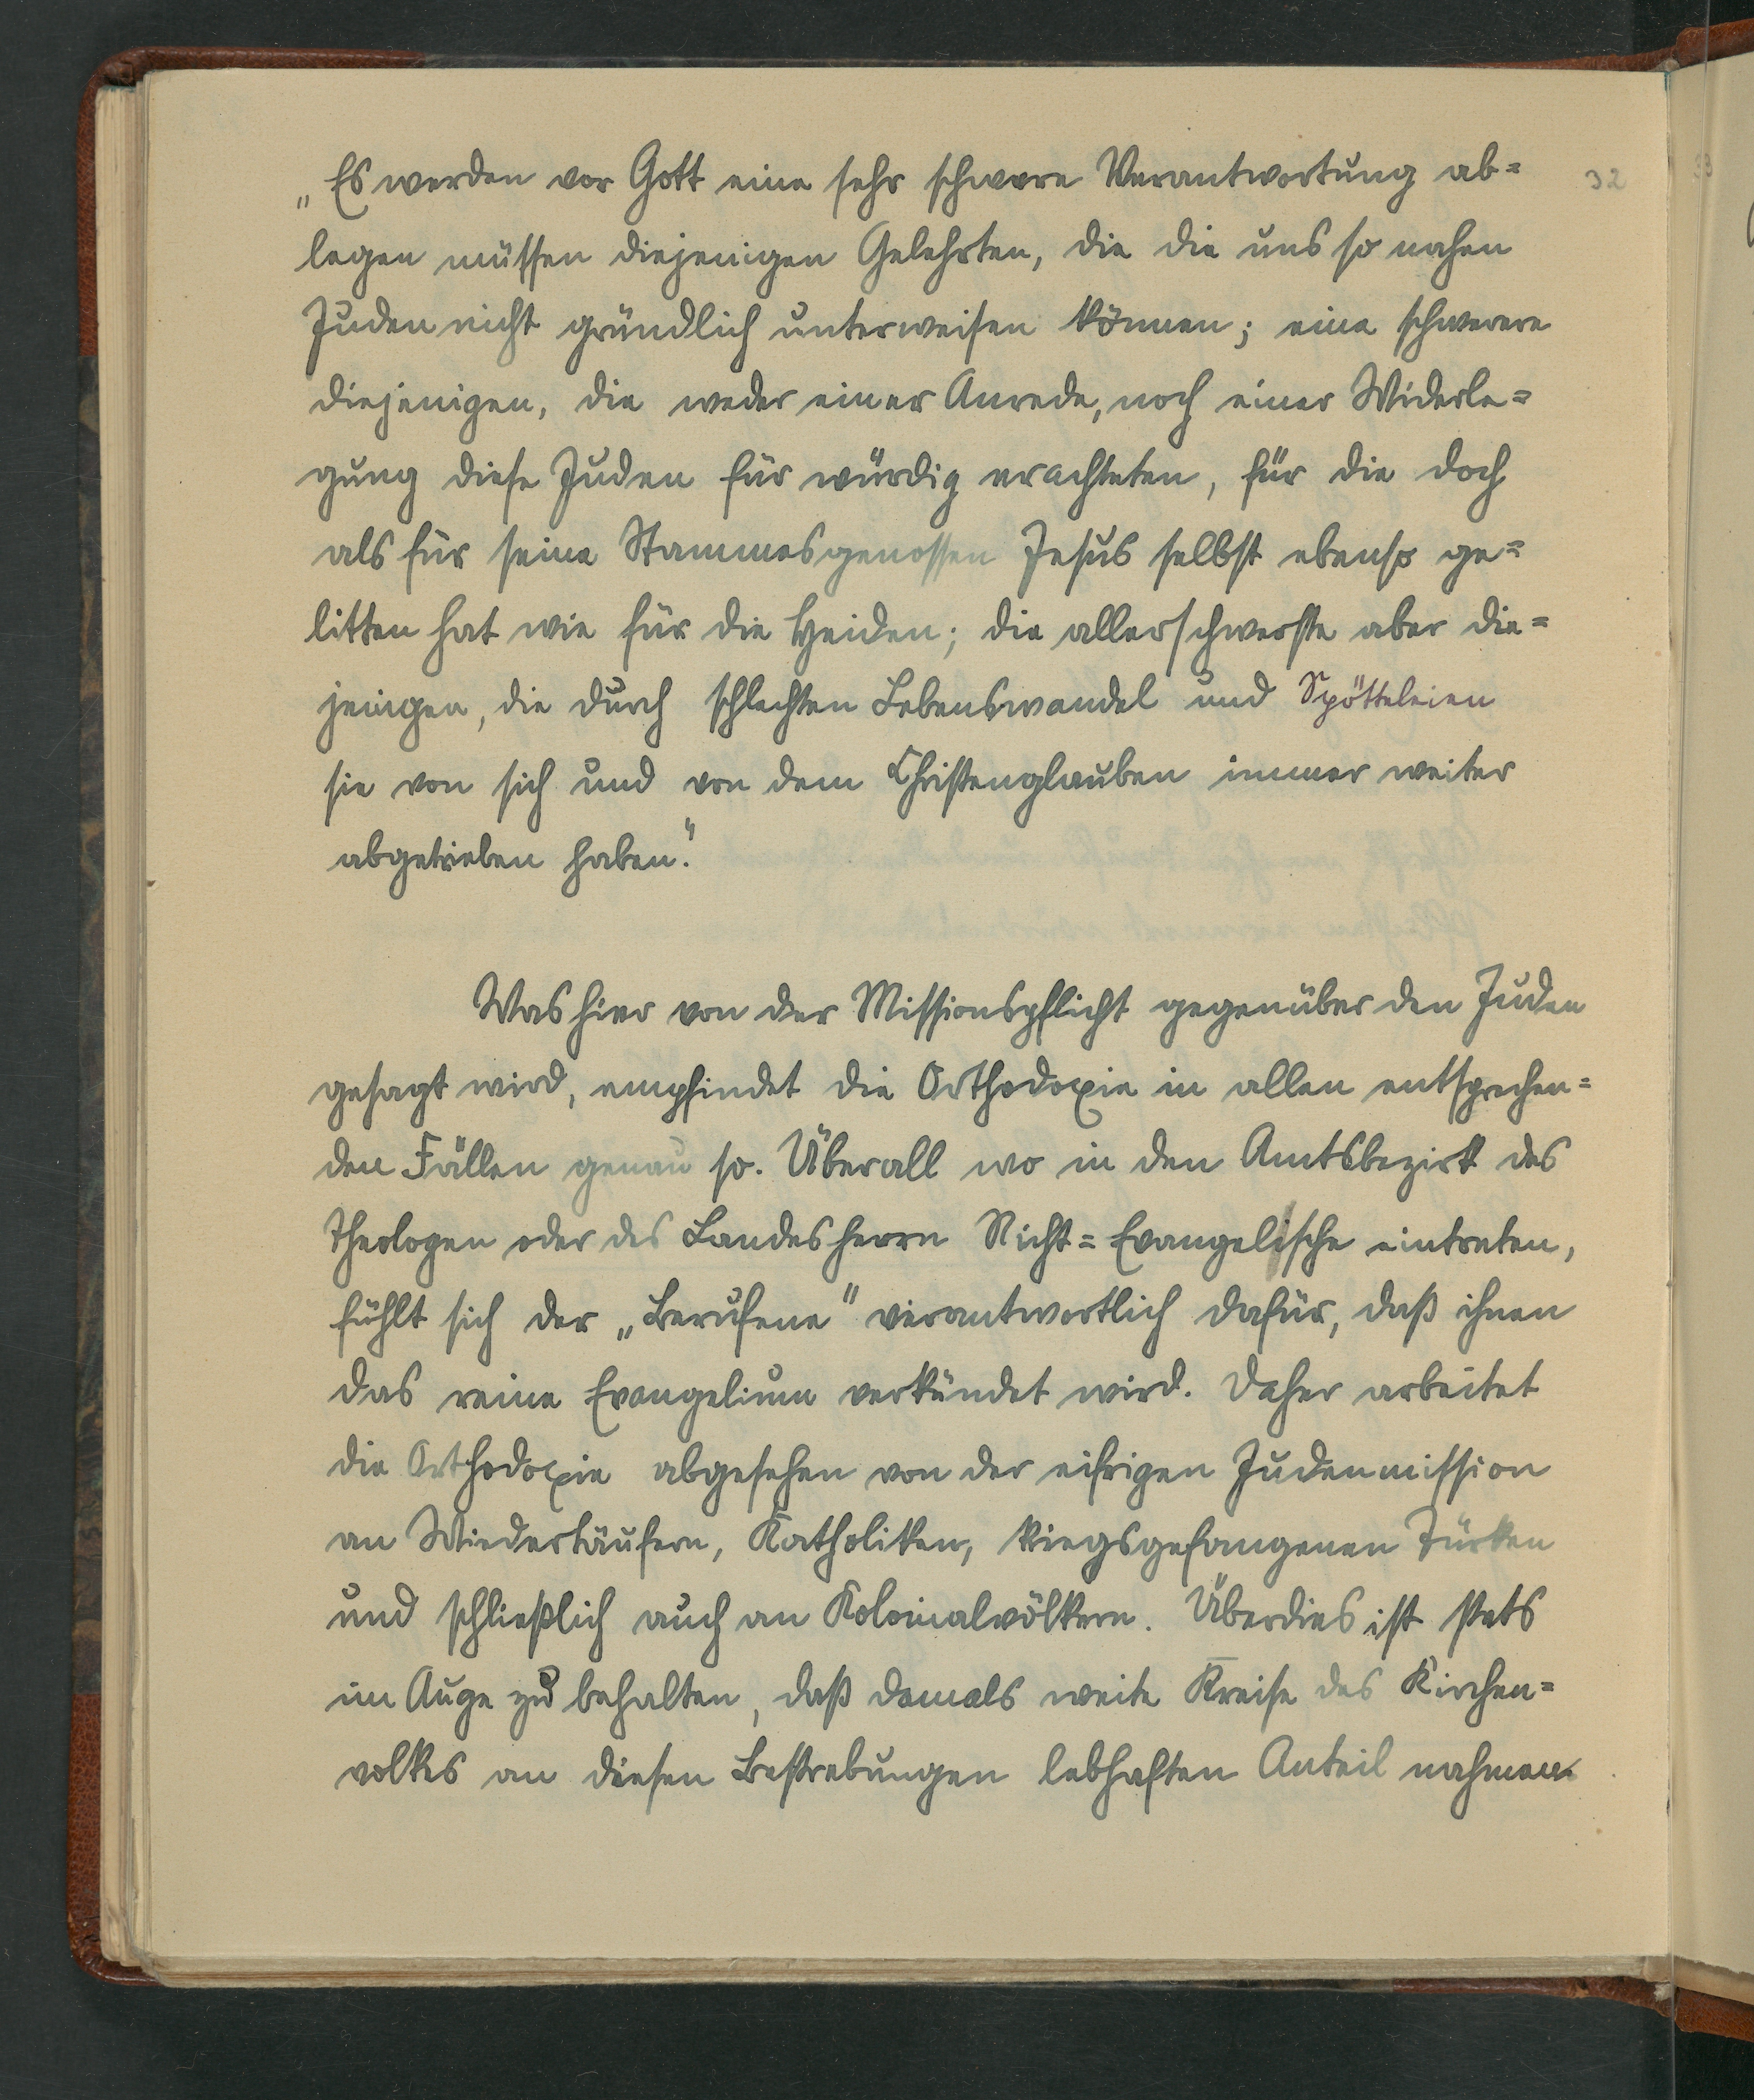 „Es werden vor Gott eine sehr schwere Verantwortung ab=
32
legen müssen diejenigen Gelehrten, die die uns so nahen
Juden nicht gründlich unterweisen können; eine schwerere
diejenigen, die weder einer Anrede, noch einer Widerle=
gung diese Juden für würdig erachteten, für die doch
als für seine Stammesgenossen Jesus selbst ebenso ge=
litten hat wie für die Heiden; die allerschwerste aber die=
jenigen, die durch schlechten Lebenswandel und Spötteleien
sie von sich und von dem Christenglauben immer weiter
abgetrieben haben."
Was hier von der Missionspflicht gegenüber den Juden
gesagt wird, empfindet die Orthodoxie in allen entsprechen=
den Fällen genau so. Überall wo in den Amtsbezirk des
Theologen oder des Landesherrn Nicht=Evangelische eintreten,
fühlt sich der „Berufene" verantwortlich dafür, daß ihnen
das reine Evangelium verkündet wird. Daher arbeitet
die Orthodoxie abgesehen von der eifrigen Judenmission
an Wiedertäufern, Katholiken, kriegsgefangenen Türken
und schließlich auch an Kolonialvölkern. Überdies ist stets
im Auge zu behalten, daß damals weite Kreise des Kirchen=
volkes an diesen Bestrebungen lebhaften Anteil nahmen.
33